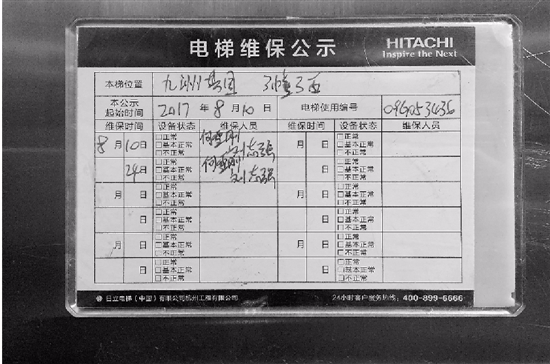 电梯维保公示 HITACHI
Inspire the Next
本梯位置 九洲花园 3幢3西
本公示起始时间 2017 年 8 月 10 日 电梯使用编号 09G053436
维保时间 设备状态 维保人员 维保时间 设备状态 维保人员
8 月 10 日 □正常 □基本正常 □不正常 刘志强 月 日 □正常 □基本正常 □不正常
24 日 □正常 □基本正常 □不正常 刘志强 日 □正常 □基本正常 □不正常
月 日 □正常 □基本正常 □不正常 月 日 □正常 □基本正常 □不正常
日 □正常 □基本正常 □不正常 日 □正常 □基本正常 □不正常
月 日 □正常 □基本正常 □不正常 月 日 □正常 □基本正常 □不正常
日 □正常 □基本正常 □不正常 日 □正常 □基本正常 □不正常
日立电梯(中国)有限公司杭州工程有限公司 24小时客户服务热线:400-899-6666